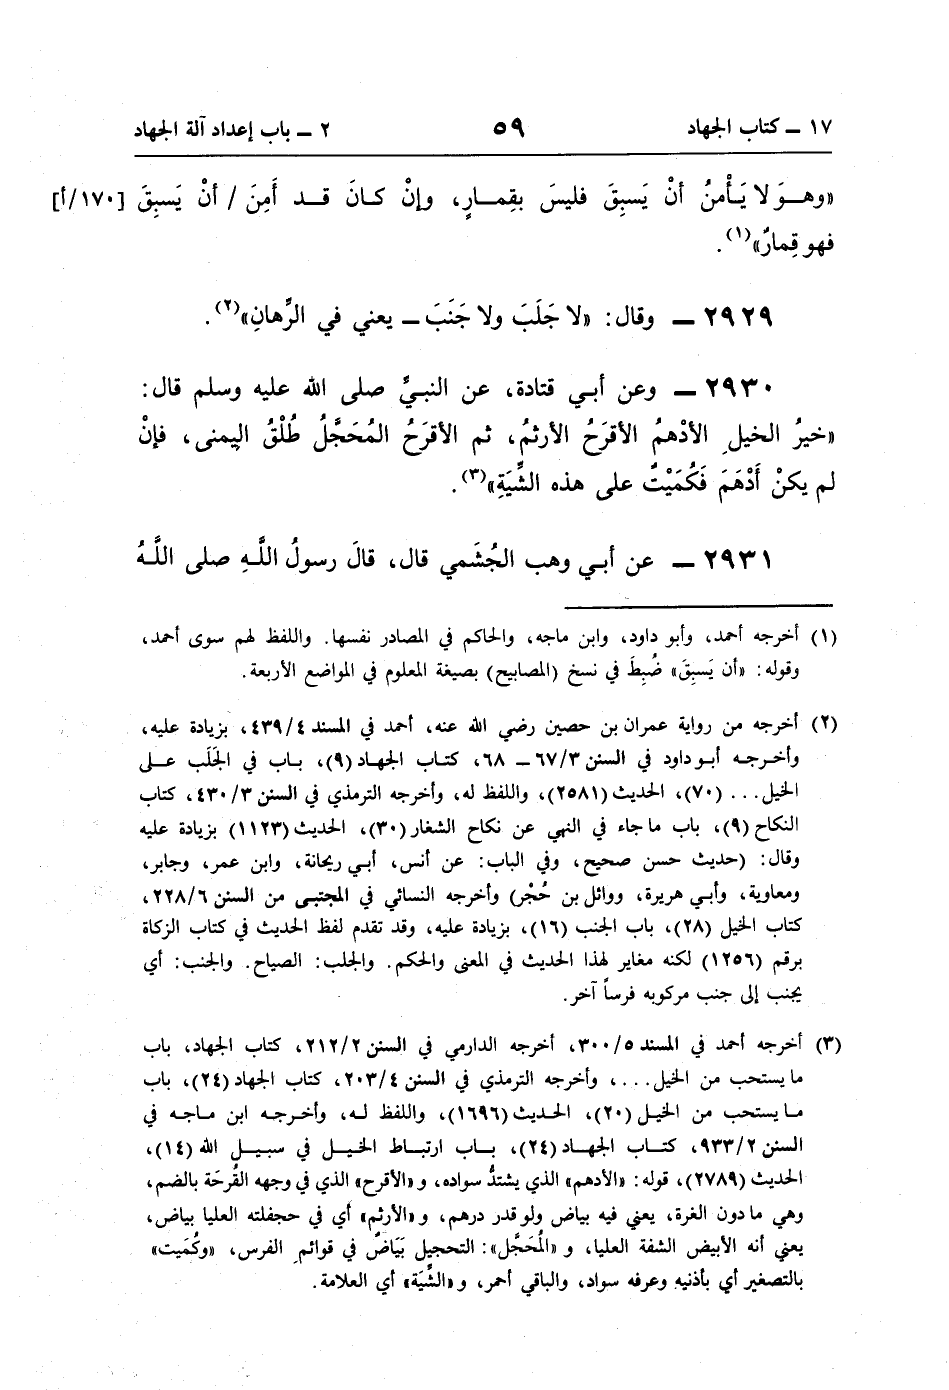 ١٧ ــ كتاب الجهاد ٥٩ ٢ ــ باب إعداد آلة الجهاد
«وهـوَ لا يَـأْمنُ أنْ يَسبِقَ فليسَ بقِمـارٍ، وإنْ كـانَ قـد أَمِنَ / أنْ يَسبِقَ [١٧٠/أ]
فهو قِمارٌ»(١).
٢٩٢٩ ــ وقال: «لا جَلَبَ ولا جَنَبَ ــ يعني في الرِّهانِ»(٢).
٢٩٣٠ ــ وعن أبي قتادة، عن النبيِّ صلى الله عليه وسلم قال:
«خيرُ الخيلِ الأدْهمُ الأقرَحُ الأرثمُ، ثم الأقرَحُ المُحَجَّلُ طُلْقُ اليمنى، فإنْ
لم يكنْ أَدْهَمَ فَكُمَيْتٌ على هذه الشِّيَةِ»(٣).
٢٩٣١ ــ عن أبـي وهب الجُشَمي قال، قالَ رسولُ اللَّـهِ صلى اللَّـهُ
(١) أخرجه أحمد، وأبو داود، وابن ماجه، والحاكم في المصادر نفسها. واللفظ لهم سوى أحمد،
وقوله: «أن يَسبِقَ» ضُبِطَ في نسخ (المصابيح) بصيغة المعلوم في المواضع الأربعة.
(٢) أخرجه من رواية عمران بن حصين رضي الله عنه، أحمد في المسند ٤٣٩/٤، بزيادة عليه،
وأخـرجـه أبـو داود في السنن ٦٧/٣ ــ ٦٨، كتاب الجهاد (٩)، بـاب في الجَلَب عـلى
الخيل... (٧٠)، الحديث (٢٥٨١)، واللفظ له، وأخرجه الترمذي في السنن ٤٣٠/٣، كتاب
النكاح (٩)، باب ما جاء في النهي عن نكاح الشغار (٣٠)، الحديث (١١٢٣) بزيادة عليه
وقال: (حديث حسن صحيح، وفي الباب: عن أنس، أبـي ريحانة، وابن عمر، وجابر،
ومعاوية، وأبـي هريرة، ووائل بن حُجْر) وأخرجه النسائي في المجتبـى من السنن ٢٢٨/٦،
كتاب الخيل (٢٨)، باب الجنب (١٦)، بزيادة عليه، وقد تقدم لفظ الحديث في كتاب الزكاة
برقم (١٢٥٦) لكنه مغاير لهذا الحديث في المعنى والحكم. والجلب: الصياح. والجنب: أي
يجنب إلى جنب مركوبه فرساً آخر.
(٣) أخرجه أحمد في المسند ٣٠٠/٥، أخرجه الدارمي في السنن ٢١٢/٢، كتاب الجهاد، باب
ما يستحب من الخيل...، وأخرجه الترمذي في السنن ٢٠٣/٤، كتاب الجهاد (٢٤)، باب
مـا يستحب من الخيل (٢٠)، الحـديث (١٦٩٦)، واللفظ لـه، وأخـرجـه ابن مـاجـه في
السنن ٩٣٣/٢، كتـاب الجهـاد (٢٤)، بـاب ارتبـاط الخيـل في سبيـل الله (١٤)،
الحديث (٢٧٨٩)، قوله: «الأدهم» الذي يشتدُّ سواده، و «الأقرح» الذي في وجهه القُرحَة بالضم،
وهي ما دون الغرة، يعني فيه بياض ولو قدر درهم، و «الأرثم» أي في جحفلته العليا بياض،
يعني أنه الأبيض الشفة العليا، و «المُحَجَّل»: التحجيل بَيَاضٌ في قوائمِ الفرس، «وكُمَيت»
بالتصغير أي بأذنيه وعرفه سواد، والباقي أحمر، و «الشِّيَة» أي العلامة.